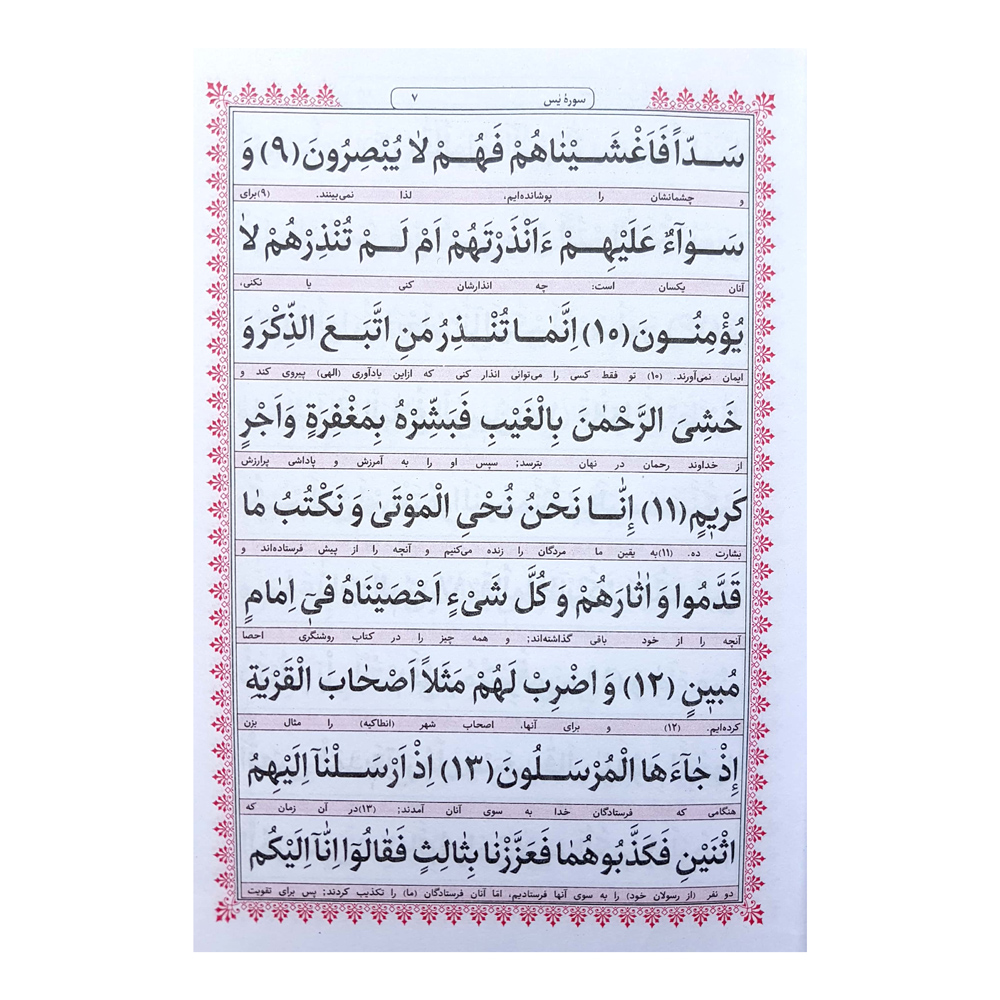 سورهٔ یٰس ۷
سَدّاً فَاَغْشَیْنٰاهُمْ فَهُمْ لاٰ یُبْصِرُونَ (۹) وَ
و چشمانشان را پوشانده‌ایم، لذا نمی‌بینند. (۹)برای
سَوٰآءٌ عَلَیْهِمْ ءَاَنْذَرْتَهُمْ اَمْ لَمْ تُنْذِرْهُمْ لاٰ
آنان یکسان است: چه انذارشان کنی یا نکنی،
یُؤْمِنُونَ (۱۰) اِنَّمٰا تُنْذِرُ مَنِ اتَّبَعَ الذِّکْرَ وَ
ایمان نمی‌آورند. (۱۰) تو فقط کسی را می‌توانی انذار کنی که ازاین یادآوری (الهی) پیروی کند و
خَشِیَ الرَّحْمٰنَ بِالْغَیْبِ فَبَشِّرْهُ بِمَغْفِرَةٍ وَ اَجْرٍ
از خداوند رحمان در نهان بترسد؛ سپس او را به آمرزش و پاداشی پرارزش
کَریٖمٍ (۱۱) إِنّٰا نَحْنُ نُحْیِ الْمَوْتَیٰ وَ نَکْتُبُ مٰا
بشارت ده. (۱۱)به یقین ما مردگان را زنده می‌کنیم و آنچه را از پیش فرستاده‌اند و
قَدَّمُوا وَ اٰثٰارَهُمْ وَ کُلَّ شَیْءٍ اَحْصَیْنٰاهُ فیٖ اِمٰامٍ
آنچه را از خود باقی گذاشته‌اند؛ و همه چیز را در کتاب روشنگری احصا
مُبیٖنٍ (۱۲) وَ اضْرِبْ لَهُمْ مَثَلاً اَصْحٰابَ الْقَرْیَةِ
کرده‌ایم. (۱۲) و برای آنها، اصحاب شهر (انطاکیه) را مثال بزن
إِذْ جٰآءَهَا الْمُرْسَلُونَ (۱۳) اِذْ اَرْسَلْنٰآ اِلَیْهِمُ
هنگامی که فرستادگان خدا به سوی آنان آمدند؛ (۱۳)در آن زمان که
اثْنَیْنِ فَکَذَّبُوهُمٰا فَعَزَّزْنٰا بِثٰالِثٍ فَقٰالُوٓا اِنّٰآ اِلَیْکُم
دو نفر (از رسولان خود) را به سوی آنها فرستادیم، امّا آنان فرستادگان (ما) را تکذیب کردند؛ پس برای تقویت